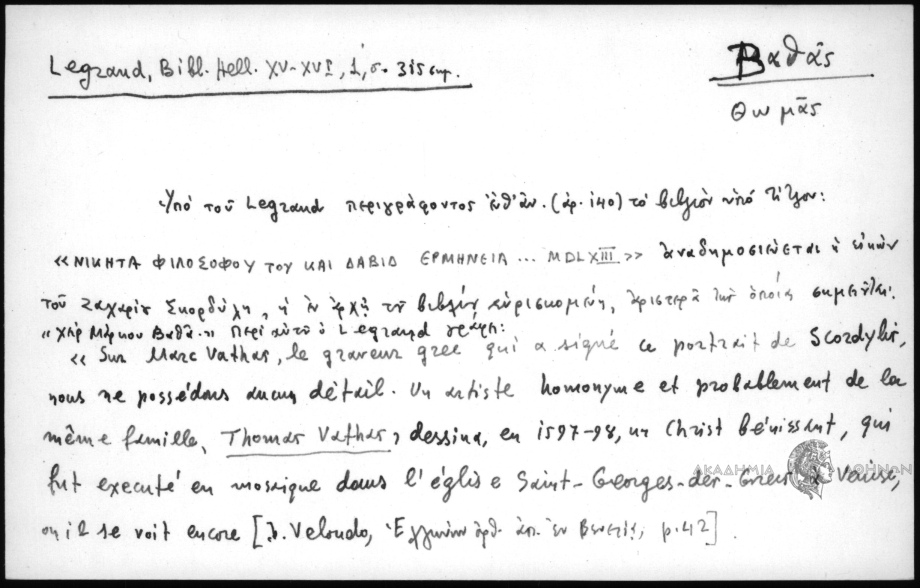 Legrand, Bibl. Hell. XV-XVI, 1, σ. 315 σημ.
Βαθᾶς
Θωμᾶς
Ὑπό τοῦ Legrand περιγράφοντος ἐνθ' ἀν. (ἀρ. 140) τό βιβλίον ὑπό τίτλον:
«ΝΙΚΗΤΑ ΦΙΛΟΣΟΦΟΥ ΤΟΥ ΚΑΙ ΔΑΒΙΔ ΕΡΜΗΝΕΙΑ ... MDLXIII» ἀναδημοσιεύεται ἡ εἰκών
τοῦ Ζαχαρίου Σκορδύλη, ἡ ἐν ἀρχῇ τοῦ βιβλίου εὑρισκομένη, ἀριστερά τῆς ὁποίας σημειοῦται:
«χείρ Μάρκου Βαθᾶ.» Περί αὐτοῦ ὁ Legrand γράφει:
« Sur Marc Vathas, le graveur grec qui a signé ce portrait de Scordylis,
nous ne possédons aucun détail. Un artiste homonyme et probablement de la
même famille, Thomas Vathas, dessina, en 1597-98, un Christ bénissant, qui
fut executé en mosaique dans l'église Saint-Georges-des-Grecs à Venise,
où il se voit encore [J. Veloudo, Ἑλλήνων ὀρθ. ἀπ. ἐν Βενετίᾳ, p. 42].
ΑΚΑΔΗΜΙΑ ΑΘΗΝΩΝ